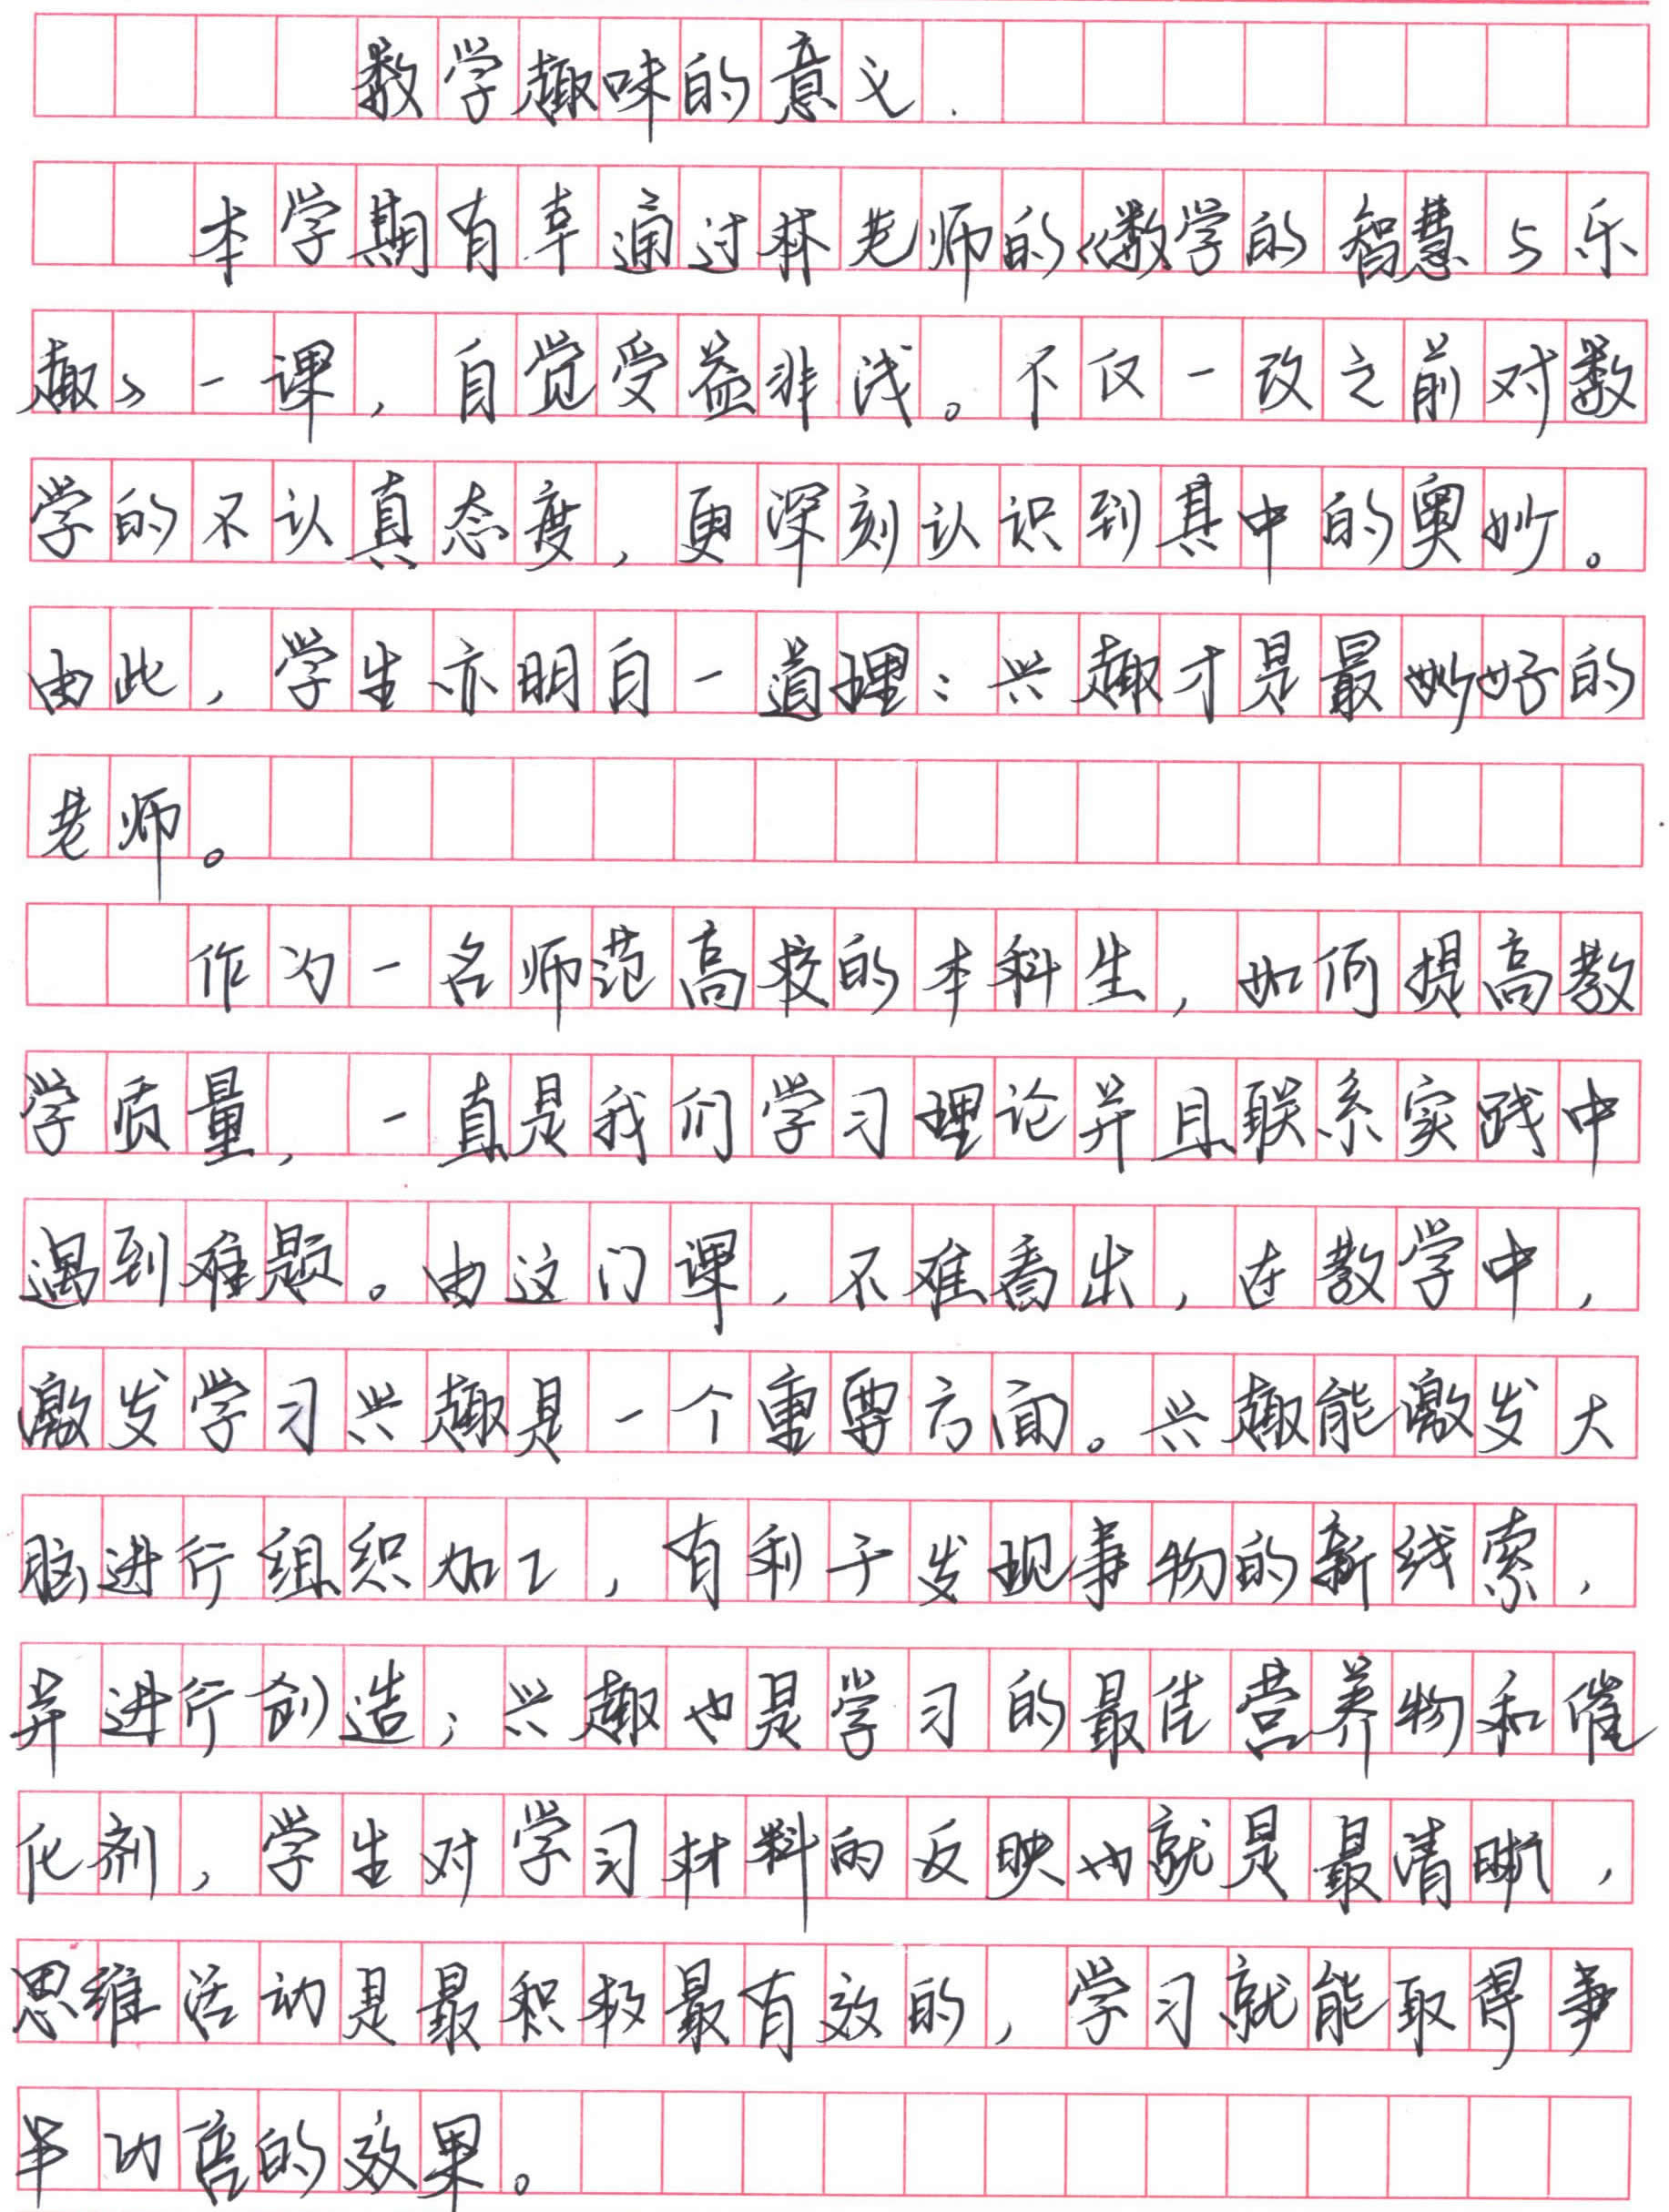 数学趣味的意义
本学期有幸通过林老师的《数学的智慧与乐
趣》一课，自觉受益非浅。不仅一改之前对数
学的不认真态度，更深刻认识到其中的奥妙。
由此，学生亦明白一道理：兴趣才是最妙好的
老师。
作为一名师范高校的本科生，如何提高教
学质量，一直是我们学习理论并且联系实践中
遇到难题。由这门课，不难看出，在教学中，
激发学习兴趣是一个重要方面。兴趣能激发大
脑进行组织加工，有利于发现事物的新线索，
并进行创造；兴趣也是学习的最佳营养物和催
化剂，学生对学习材料的反映也就是最清晰，
思维活动是最积极最有效的，学习就能取得事
半功倍的效果。